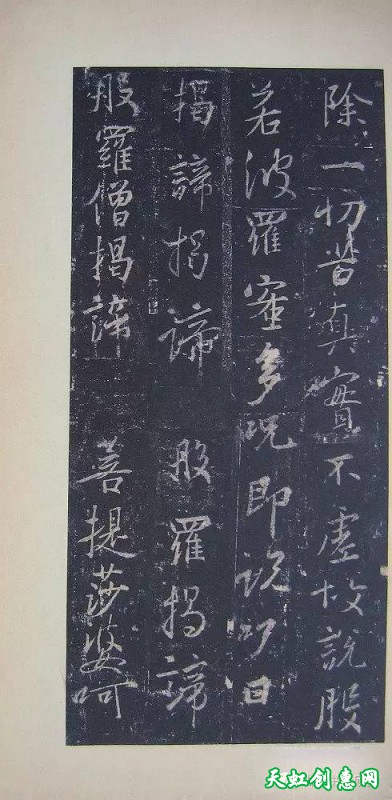 除一切苦真實不虛故說般
若波羅蜜多呪即說呪曰
揭諦揭諦　般羅揭諦
般羅僧揭諦　菩提莎婆呵
天虹创意网